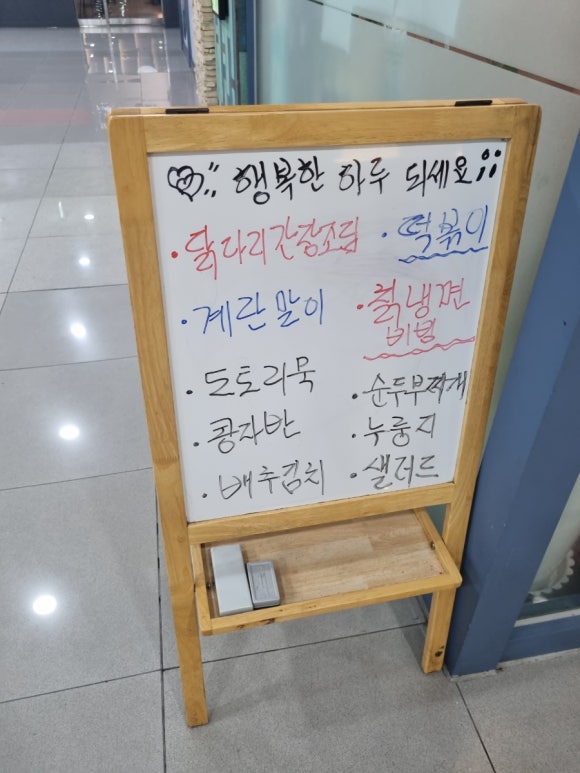 행복한 하루 되세요;;
· 닭다리간장조림
· 계란말이
· 도토리묵
· 콩자반
· 배추김치
· 떡볶이
· 칡냉면
비빔
· 순두부찌개
· 누룽지
· 샐러드